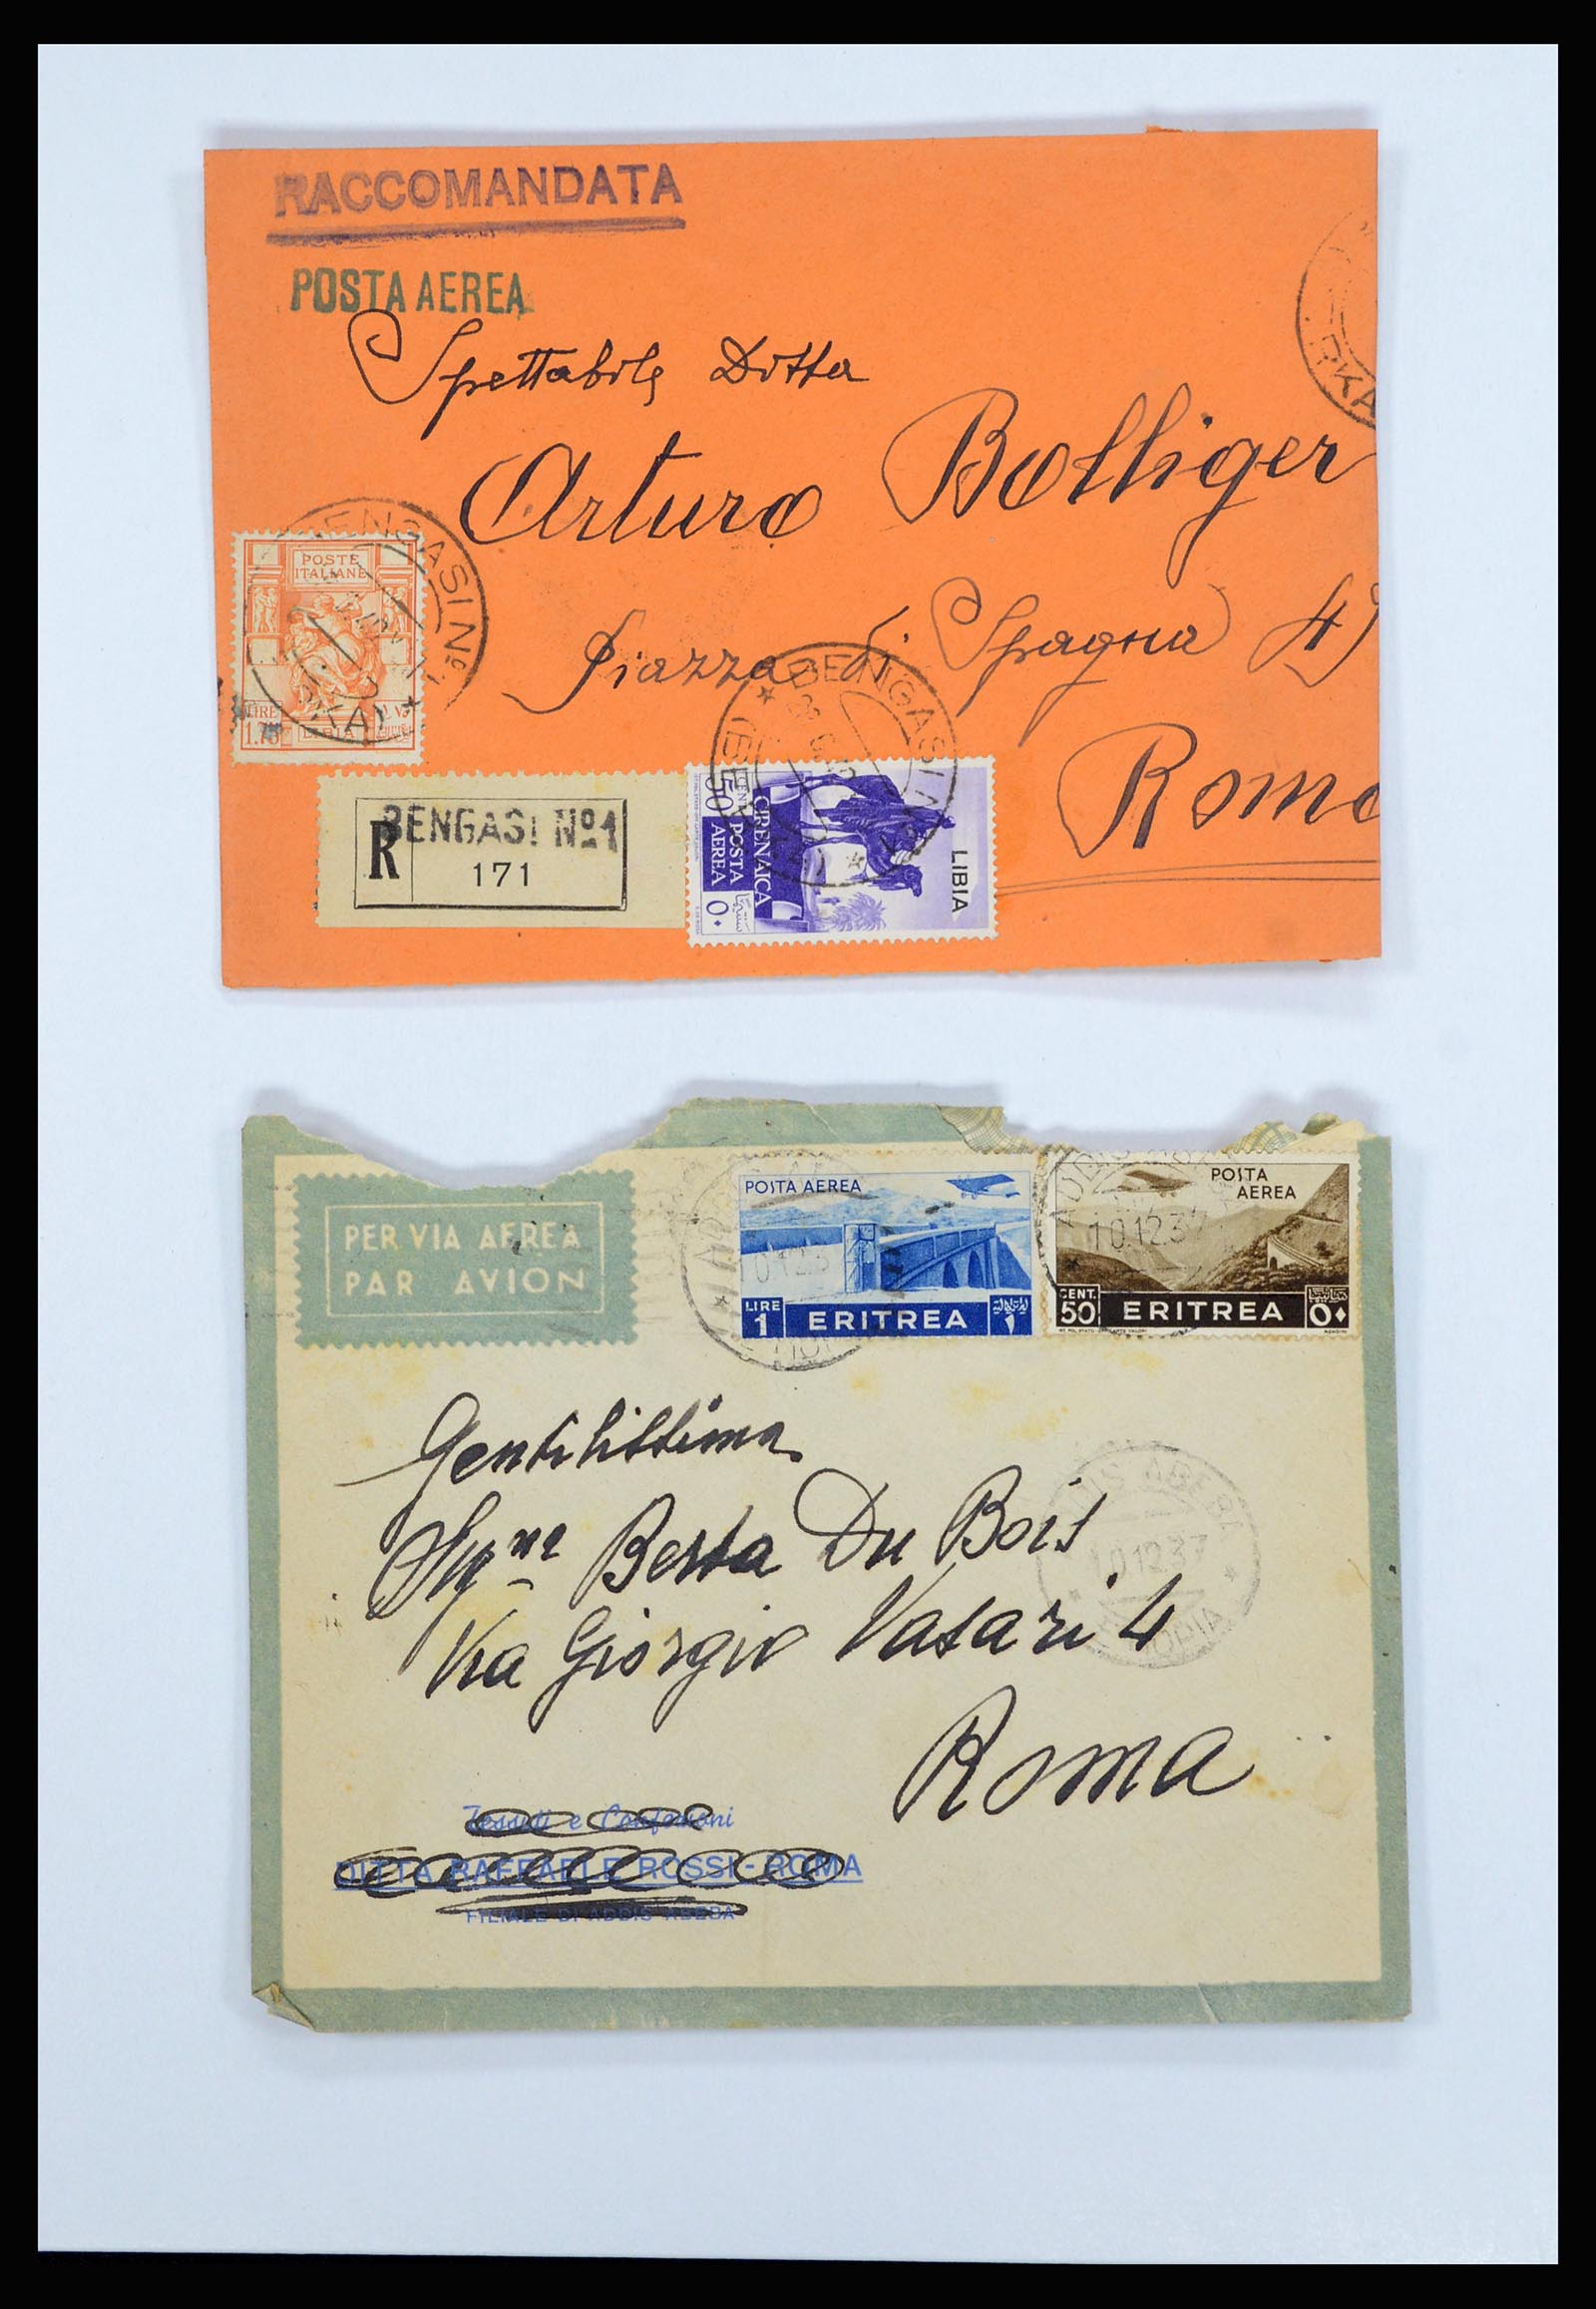 RACCOMANDATA
POSTA AEREA
Spettabile Ditta
Arturo Bolliger
Piazza di Spagna 4
Roma
BENGASI Nº
POSTE
ITALIANE
LIRE
1.75
LIBIA
R
BENGASI Nº1
171
BENGASI
CENT
50
CIRENAICA
POSTA
AEREA
LIBIA
PER VIA AEREA
PAR AVION
POSTA AEREA
LIRE
1
ERITREA
POSTA
AEREA
10.12.37
CENT.
50
ERITREA
Gentilissima
Sig.na Berta Du Bois
Via Giorgio Vasari 4
Roma
ABEBA
10.12.37
Tessuti e Confezioni
DITTA RAFFAELE ROSSI - ROMA
FILIALE DI ADDIS ABEBA